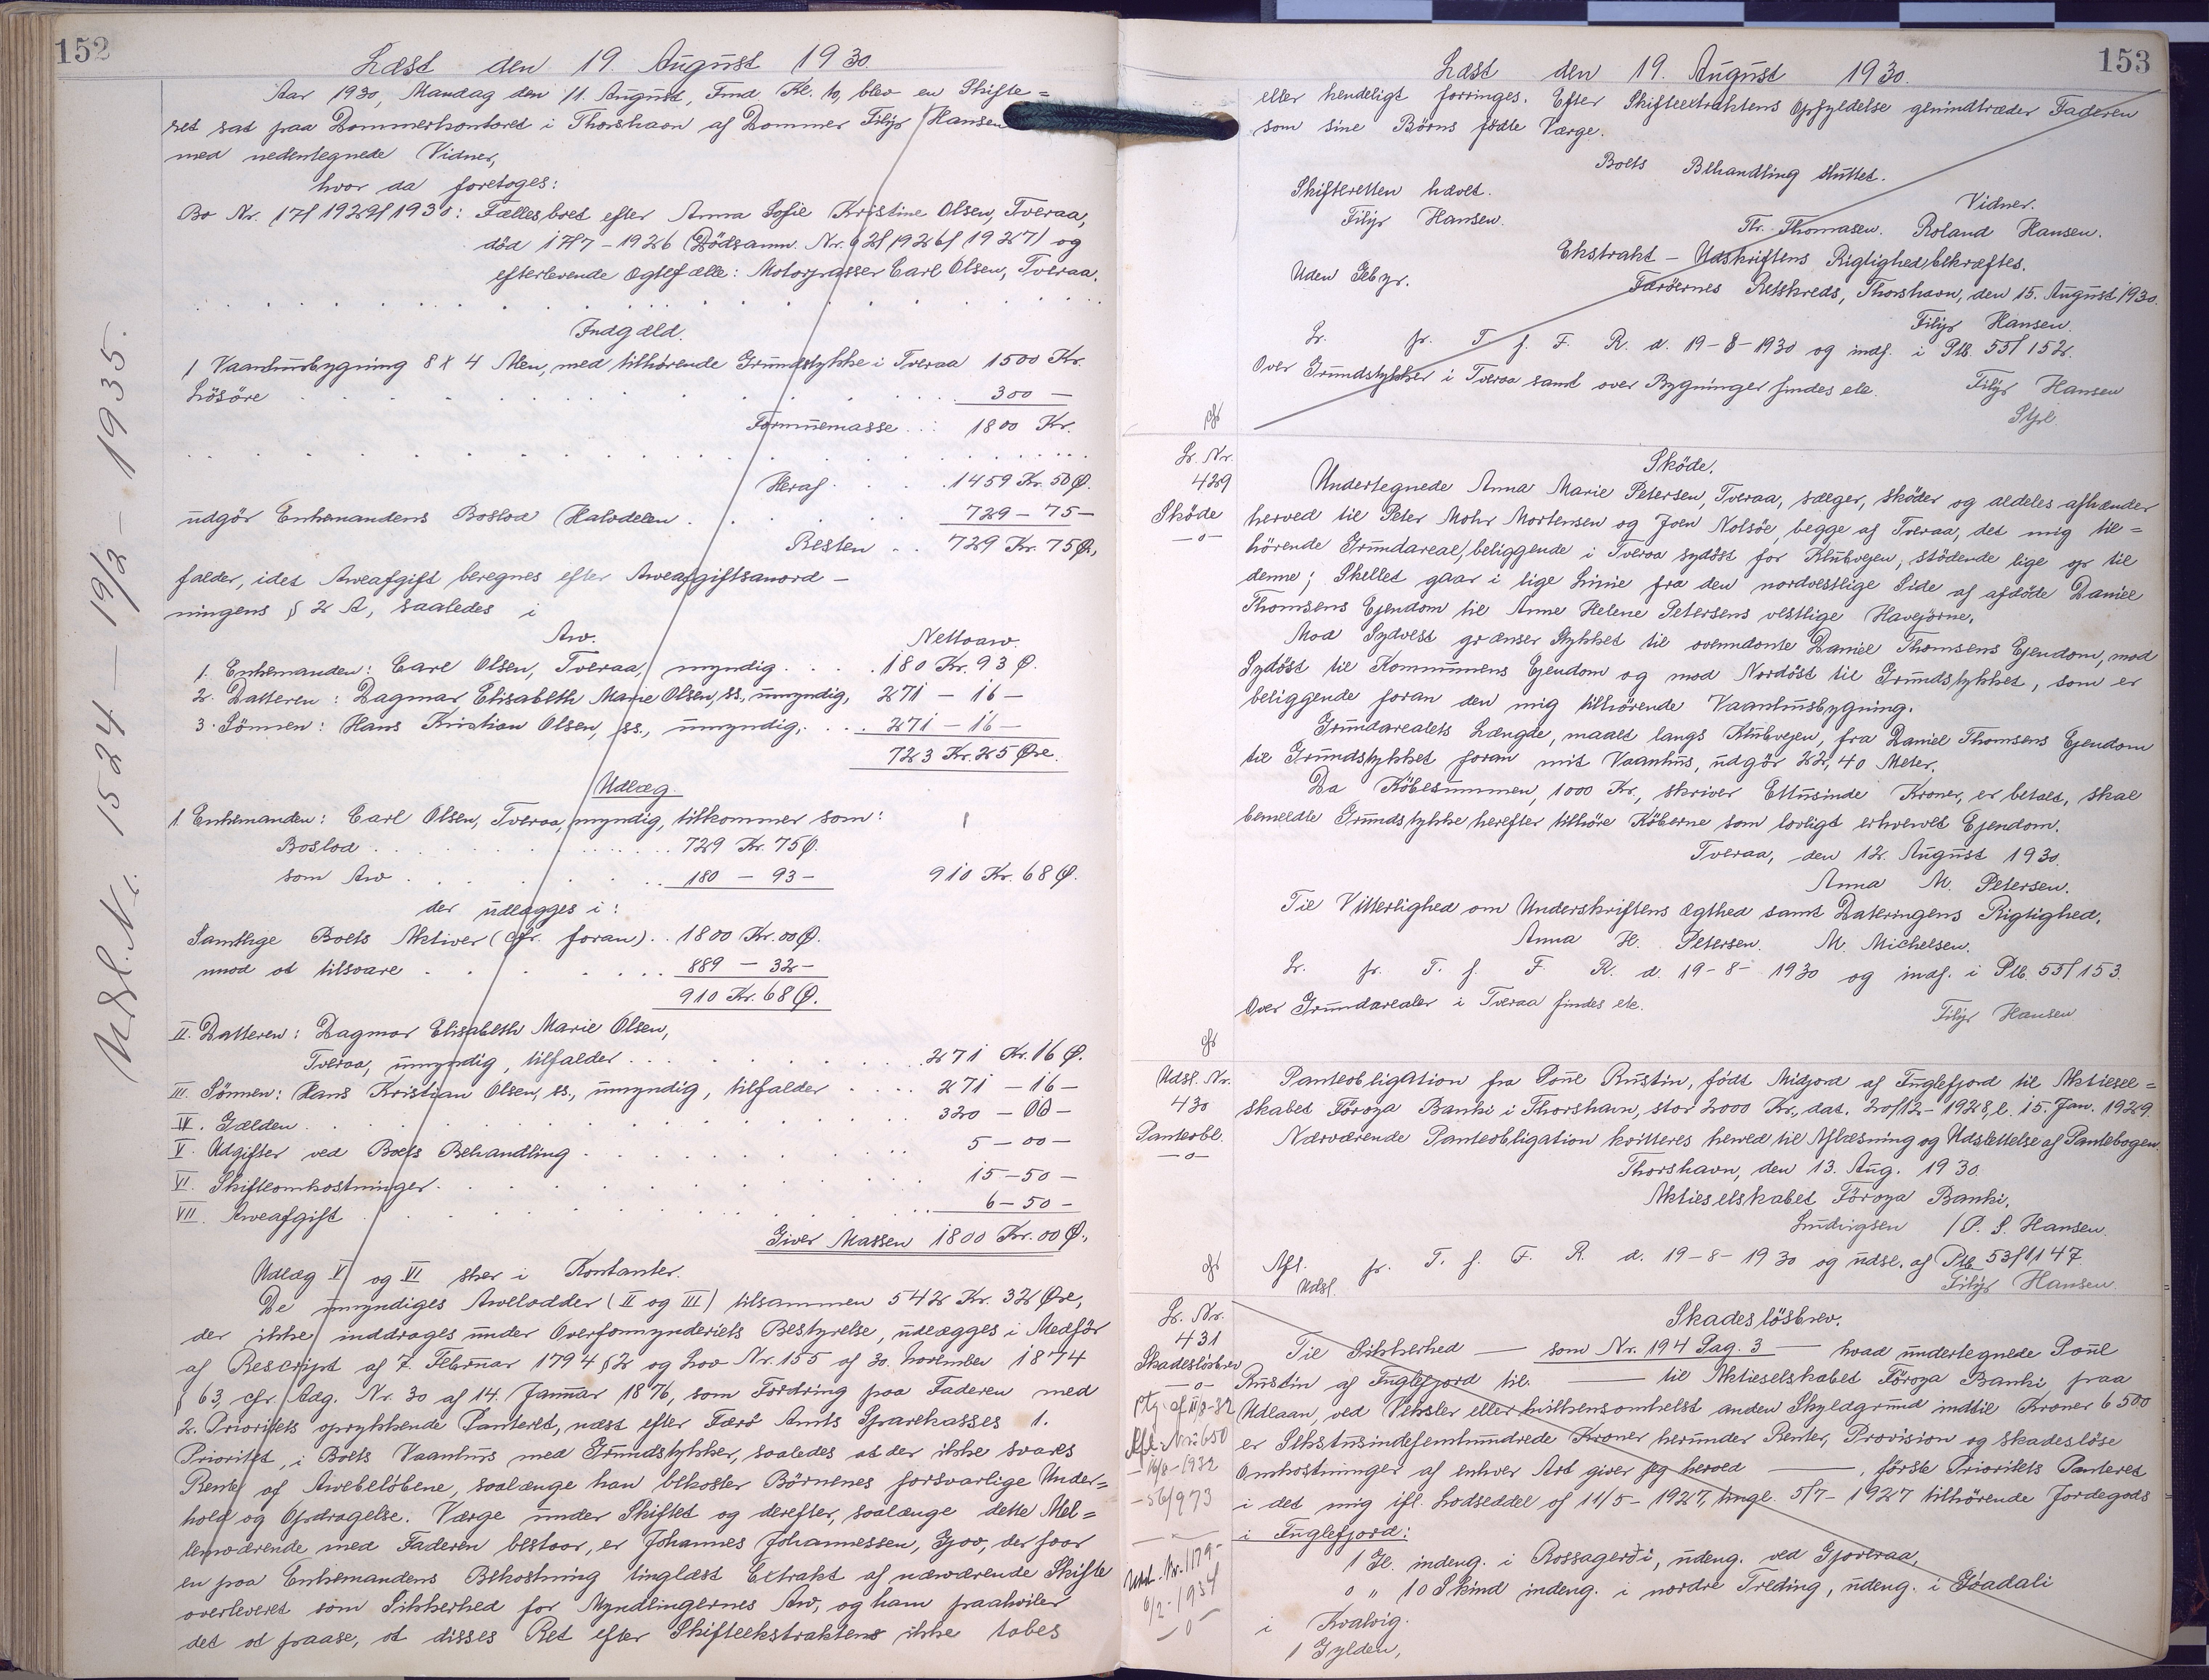 152
Læst den 19. August 1930.
Aar 1930, Mandag den 11. August, Fmd. Kl. 10, blev en Skifte=
ret sat paa Dommerkontoret i Thorshavn af Dommer Filip Hansen
med nedentegnede Vidner,
hvor da foretoges:
Bo Nr. 17/1929/1930: Fællesboet efter Anna Sofie Kristine Olsen, Tveraa,
død 17/7-1926 (Dødsanm. Nr. 92/1926/1927) og
efterlevende Ægtefælle: Motorpasser Carl Olsen, Tveraa.
Indgæld.
1 Vaanhusbygning 8 x 4 Alen, med tilhørende Grundstykke i Tveraa 1500 Kr.
Løsøre 300 —
Formuemasse 1800 Kr.
Heraf 1459 Kr. 50 Ø.
udgør Enkemandens Boslod (Halvdelen 729 - 75 -
Resten 729 Kr. 75 Ø,
falder, idet Arveafgift beregnes efter Arveafgiftsanord-
ningens § 2 A, saaledes i
Arv. Nettoarv.
1. Enkemanden: Carl Olsen, Tveraa, myndig 180 Kr. 93 Ø.
2. Datteren: Dagmar Elisabeth Marie Olsen, ss., umyndig, 271 - 16 -
3. Sønnen: Hans Kristian Olsen, ss., umyndig, 271 - 16 -
723 Kr. 25 Øre.
Udlæg.
1. Enkemanden: Carl Olsen, Tveraa, myndig, tilkommer som:
Boslod 729 Kr. 75 Ø.
som Arv 180 - 93 - 910 Kr. 68 Ø.
der udlægges i:
Samtlige Boets Aktiver (cfr. foran) 1800 Kr. 00 Ø.
mod at tilsvare 889 - 32 -
910 Kr. 68 Ø.
II. Datteren: Dagmar Elisabeth Marie Olsen,
Tveraa, umyndig, tilfalder 271 Kr. 16 Ø.
III. Sønnen: Hans Kristian Olsen, ss., umyndig, tilfalder 271 - 16 -
IV. Gælden 320 - 00 -
V. Udgifter ved Boets Behandling 5 - 00 -
VI. Skifteomkostninger 15 - 50 -
VII. Arveafgift 6 - 50 -
Giver Massen 1800 Kr. 00 Ø.,
Udlæg V og VI sker i Kontanter.
De umyndiges Arvelodder (II og III) tilsammen 542 Kr. 32 Øre,
der ikke inddrages under Overformynderiets Bestyrelse, udlægges i Medfør
af Rescript af 7. Februar 1794 § 2 og Lov Nr. 155 af 30. November 1874
§ 63, cfr. Adg. Nr. 30 af 14. Januar 1876, som Fordring paa Faderen med
2. Prioritets oprykkende Panteret, næst efter Færø Amts Sparekasses 1.
Prioritet, i Boets Vaanhus med Grundstykker, saaledes at der ikke svares
Rente af Arvebeløbene, saalænge han bekoster Børnenes forsvarlige Under=
hold og Opdragelse. Værge under Skiftet og derefter, saalænge dette Mel=
lemværende med Faderen bestaar, er Johannes Johannessen, Gjov, der faar
en paa Enkemandens Bekostning tinglæst Extrakt af nærværende Skifte
overleveret som Sikkerhed for Myndlingernes Arv, og ham paahviler
det at paase, at disses Ret efter Skifteekstraktens ikke tabes
Udsl. Nr. 1524 - 19/2 - 1935.
153
Læst den 19. August 1930.
eller hendeligt forringes. Efter Skifteextraktens Opfyldelse genindtræder Faderen
som sine Børns fødte Værge.
Boets Behandling sluttet.
Skifteretten hævet.
Vidner.
Filip Hansen.
Th. Thomasen. Roland Hansen.
Ekstrakt - Udskriftens Rigtighed bekræftes.
Uden Gebyr.
Færøernes Retskreds, Thorshavn, den 15. August 1930.
Filip Hansen.
Lr. pr. T. f. F. R. d. 19-8-1930 og indf. i Ptb. 55/152.
Over Grundstykker i Tveraa samt over Bygninger findes etc.
Filip Hansen
cfr
Lr. Nr.
429
Skøde
—o—
Skøde.
Undertegnede Anna Marie Petersen, Tveraa, sælger, skøder og aldeles afhænder
herved til Peter Mohr Mortensen og Joen Nolsøe, begge af Tveraa, det mig til=
hørende Grundareal, beliggende i Tveraa sydøst for Klubvejen, stødende lige op til
denne; Skellet gaar i lige Linie fra den nordvestlige Side af afdøde Daniel
Thomsens Ejendom til Anne Helene Petersens vestlige Havejørne.
Mod Sydvest grænser Stykket til ovennævnte Daniel Thomsens Ejendom, mod
Sydøst til Kommunens Ejendom og mod Nordøst til Grundstykket, som er
beliggende foran den mig tilhørende Vaanhusbygning.
Grundarealets Længde, maalt langs Klubvejen, fra Daniel Thomsens Ejendom
til Grundstykket foran mit Vaanhus, udgør 22,40 Meter.
Da Købesummen, 1000 Kr., skriver Ettusinde Kroner, er betalt, skal
bemeldte Grundstykke herefter tilhøre Køberne som lovligt erhvervet Ejendom.
Tveraa, den 12. August 1930.
Anna M. Petersen.
Til Vitterlighed om Underskriftens Ægthed samt Dateringens Rigtighed.
Anna H. Petersen. M. Michelsen.
Lr. pr. T. f. F. R. d. 19-8-1930 og indf. i Ptb. 55/153.
Over Grundarealer i Tveraa findes etc.
Filip Hansen
cfr
Udsl. Nr.
430
Panteobl.
—o—
Panteobligation fra Poul Rustin, født Midjord af Fuglefjord til Aktiesel=
skabet Föroya Banki i Thorshavn, stor 2000 Kr., dat. 20/12-1928, l. 15. Jan. 1929.
Nærværende Panteobligation kvitteres herved til Aflæsning og Udslettelse af Pantebogen.
Thorshavn, den 13. Aug. 1930.
Aktieselskabet Föroya Banki,
Ludvigsen / P. S. Hansen.
cfr
Afl. Udsl. pr. T. f. F. R. d. 19-8-1930 og udsl. af Ptb. 53/1147
Filip Hansen.
Lr. Nr.
431
Skadesløsbrev
—o—
Skadesløsbrev.
Til Sikkerhed — som Nr. 194 Pag. 3 — hvad undertegnede Poul
Rustin af Fuglefjord til. — til Aktieselskabet Föroya Banki paa
Udlaan, ved Veksler eller hvilkensomhelst anden Skyldgrund indtil Kroner 6500
er Sekstusindefemhundrede Kroner herunder Renter, Provision og skadesløse
Omkostninger af enhver Art giver jeg herved —, første Prioritets Panteret
i det mig ifl. Lodseddel af 11/5-1927, tingl. 5/7-1927 tilhørende Jordegods
i Fuglefjord:
1 Gl. indeng. i Rossagerði, udeng. ved Gjoveraa,
0 " 10 Skind indeng. i nordre Treding, udeng. i Góadali
i Kvalvig.
1 Gylden,